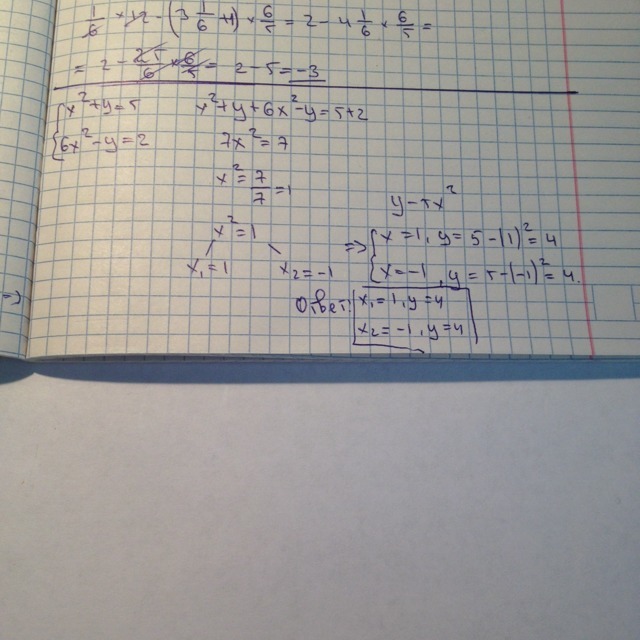 1/6 × 12 - (3 1/6 + 1) × 6/5 = 2 - 4 1/6 × 6/5 =
= 2 - 25/6 × 6/5 = 2 - 5 = -3
{x² + y = 5
6x² - y = 2
x² + y + 6x² - y = 5 + 2
7x² = 7
x² = 7/7 = 1
x² = 1
x₁ = 1 x₂ = -1
y - 5x²
=> {x = 1, y = 5 - (1)² = 4
x = -1, y = 5 - (-1)² = 4.
Ответ: x₁ = 1, y = 4
x₂ = -1, y = 4
=>